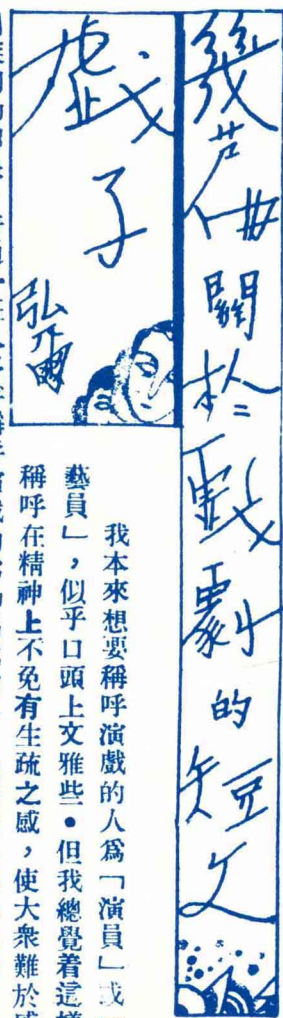 幾關於戲劇的短文
戲子
我本來想要稱呼演戲的人爲「演員」或
藝員」，似乎口頭上文雅些•但我總覺着這樣
稱呼在精神上不免有生疏之感，使大衆難於